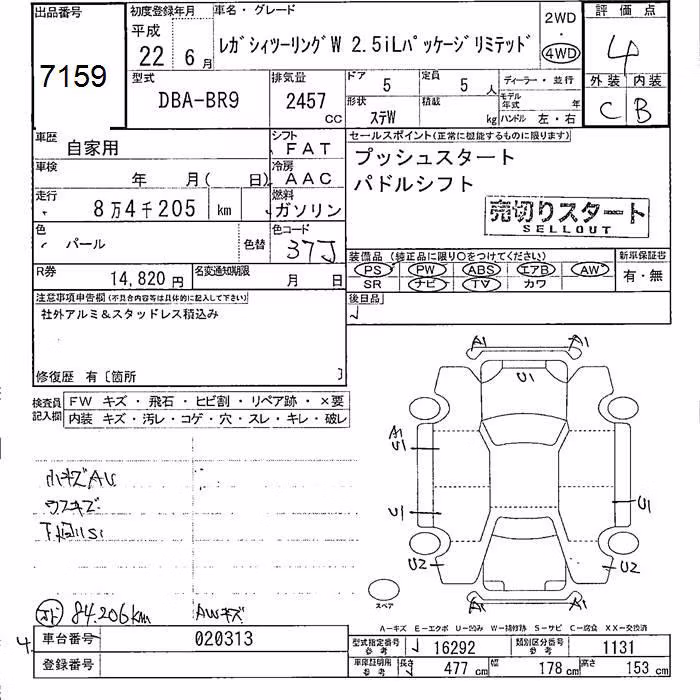 出品番号
7159
初度登録年月
平成
22年6月
車名・グレード
レガシィツーリングW 2.5iLパッケージリミテッド
2WD
・
4WD
評価点
4
外装 内装
C B
型式
DBA-BR9
排気量
2457
CC
ドア
5
定員
5人
形状
ステW
積載
kg
ディーラー・並行
モデル年式 年
ハンドル 左・右
車歴
自家用
シフト
FAT
車検
年 月( 日)
冷房
AAC
走行
8万4千205 km
燃料
ガソリン
色
パール
色替
色コード
37J
R券
14,820円
名変通知期限
月 日
セールスポイント(正常に機能するものに限ります)
プッシュスタート
パドルシフト
売切りスタート
SELLOUT
装備品 (純正品に限り○をつけてください)
PS PW ABS エアB AW
SR ナビ TV カワ
新車保証書
有・無
後日品
注意事項申告欄(不具合内容等は具体的に記入して下さい)
社外アルミ&スタッドレス積込み
修復歴 有〔箇所 〕
検査員記入欄
FW キズ・飛石・ヒビ割・リペア跡・×要
内装 キズ・汚レ・コゲ・穴・スレ・キレ・破レ
小キズAU
ウスキズ
84.206km
AWキズ
A1 A1
U1
A1
U1
U1
U1
U2 U2
A1 A1
スペア
A-キズ E-エクボ U-凹み W-補修跡 S-サビ C-腐食 XX-交換済
車台番号
020313
登録番号
型式指定番号
参考
16292
類別区分番号
参考
1131
車庫証明用
参考
長さ
477 cm
幅
178 cm
高さ
153 cm